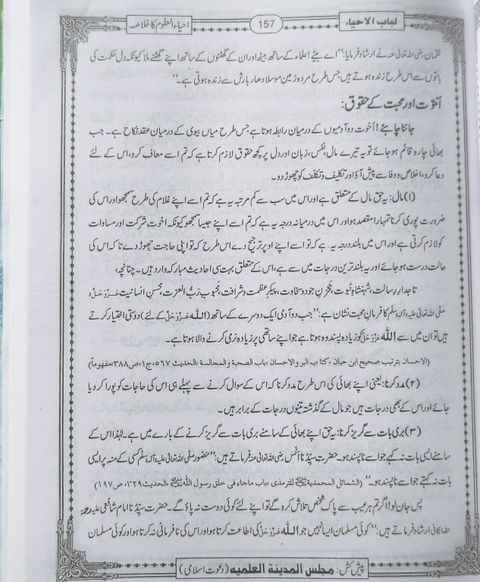 احیاء العلوم کا خلاصہ 157 لباب الاحیاء
لقمان رضی اللہ تعالیٰ عنہ نے ارشاد فرمایا: ”اے بیٹے! علماء کے ساتھ بیٹھ اور ان کے گھٹنوں کے ساتھ اپنے گھٹنے ملا کیونکہ دل حکمت کی
باتوں سے اس طرح زندہ ہوتے ہیں جس طرح مردہ زمین موسلا دھار بارش سے زندہ ہوتی ہے۔“
اُخوّت اور محبت کے حقوق:
جاننا چاہئے! اُخوت دو آدمیوں کے درمیان رابطہ ہوتا ہے جس طرح میاں بیوی کے درمیان عقدِ نکاح ہے۔ جب
بھائی چارہ قائم ہو جائے تو یہ تیرے مال، نفس، زبان اور دل پر کچھ حقوق لازم کرتا ہے کہ تم اسے معاف کرو، اس کے لئے
دعا کرو، اخلاص و وفا سے پیش آؤ اور تکلیف و تکلّف کو چھوڑ دو۔
(۱) مال: یہ حق مال کے متعلق ہے اور اس میں سب سے کم مرتبہ یہ ہے کہ تم اسے اپنے غلام کی طرح سمجھو اور اس کی
ضرورت پوری کرنا تمہارا مقصد ہو اور اس میں درمیانہ درجہ یہ ہے کہ تم اسے اپنے جیسا سمجھو کیونکہ اخوت شرکت اور مساوات
کو لازم کرتی ہے اور اس میں بلند درجہ یہ ہے کہ تو اسے اپنے اوپر ترجیح دے اس طرح کہ تو اپنی حاجت چھوڑ دے تاکہ اس کی
حالت درست ہو جائے اور یہ بلند ترین درجات میں سے ہے، اس کے متعلق بہت سی احادیث مبارکہ وارد ہیں۔ چنانچہ،
تاجدارِ رسالت، شہنشاہِ نبوت، مخزنِ جود و سخاوت، پیکرِ عظمت و شرافت، محبوبِ ربُّ العزت، محسنِ انسانیت عَزَّوَجَلَّ و
صلی اللہ تعالیٰ علیہ وآلہ وسلم کا فرمانِ محبت نشان ہے: ”جب دو آدمی ایک دوسرے کے ساتھ (اللہ عَزَّوَجَلَّ کے لئے) دوستی اختیار کرتے
ہیں تو ان میں سے اللہ عَزَّوَجَلَّ کو زیادہ پسندیدہ وہ ہوتا ہے جو اپنے ساتھی پر زیادہ نرمی کرنے والا ہوتا ہے۔
(الاحسان بترتیب صحیح ابن حبان، کتاب البر والاحسان باب الصحبة و المجالسة، الحدیث ۵۶۷، ج۱، ص۳۸۸، مفہوماً)
(۲) مدد کرنا: یعنی اپنے بھائی کی اس طرح مدد کرنا کہ اس کے سوال کرنے سے پہلے ہی اس کی حاجات کو پورا کر دیا
جائے اور اس کے بھی درجات ہیں جو مال کے گذشتہ تینوں درجات کے برابر ہیں۔
(۳) بری بات سے گریز کرنا: یہ حق اپنے بھائی کے سامنے بری بات سے گریز کرنے کے بارے میں ہے۔ لہٰذا اس کے
سامنے ایسی بات نہ کہے جو اسے ناپسند ہو۔ حضرت سیّدُنا انس رضی اللہ تعالیٰ عنہ فرماتے ہیں: ”حضور صلی اللہ تعالیٰ علیہ وآلہ وسلم کسی کے منہ پر ایسی
بات نہ کہتے جو اسے ناپسند ہو۔“ (الشمائل المحمدیۃ للترمذی باب ماجاء فی خلق رسول اللہ، الحدیث ۳۲۹، ص۱۹۷)
پس جان لو! اگر تم ہر عیب سے پاک شخص تلاش کرو گے تو اپنے لئے کوئی دوست نہ پاؤ گے۔ حضرت سیّدُنا امام شافعی علیہ رحمۃ
اللہ الکافی ارشاد فرماتے ہیں: ”کوئی مسلمان ایسا نہیں جو اللہ عَزَّوَجَلَّ کی اطاعت کرتا ہو اور اس کی نافرمانی نہ کرتا ہو اور کوئی مسلمان
پیش کش: مجلس المدینۃ العلمیہ (دعوت اسلامی)